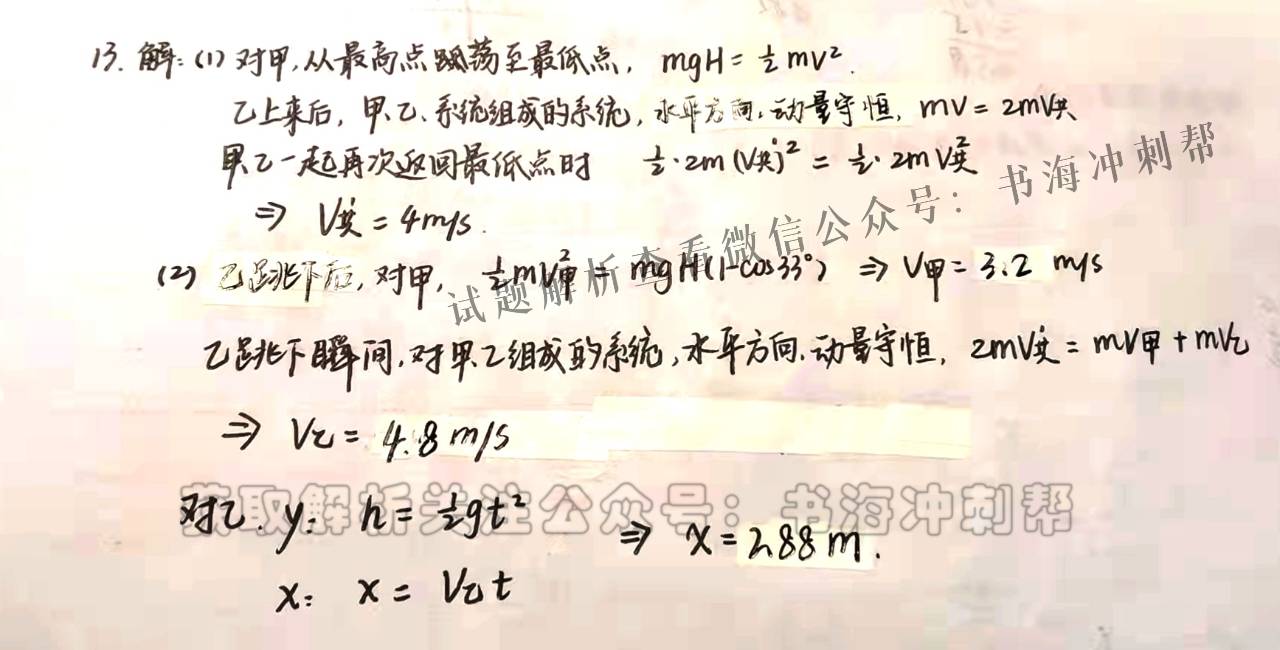 13. 解: (1) 对甲,从最高点跳荡至最低点, mgH = ½mv².
乙上来后, 甲、乙、系统组成的系统, 水平方向,动量守恒, mv = 2mv共
甲乙一起再次返回最低点时 ½·2m(v共')² = ½·2mv共²
⇒ v共' = 4m/s.
(2) 乙跳下后, 对甲, ½mv甲² = mgH(1-cos33°) ⇒ v甲 = 3.2 m/s
乙跳下瞬间, 对甲乙组成的系统, 水平方向,动量守恒, 2mv共' = mv甲 + mv乙
⇒ v乙 = 4.8 m/s
对乙. y: h = ½gt²
⇒ x = 2.88m.
x: x = v乙t
试题解析查看微信公众号：书海冲刺帮
获取解析关注公众号：书海冲刺帮